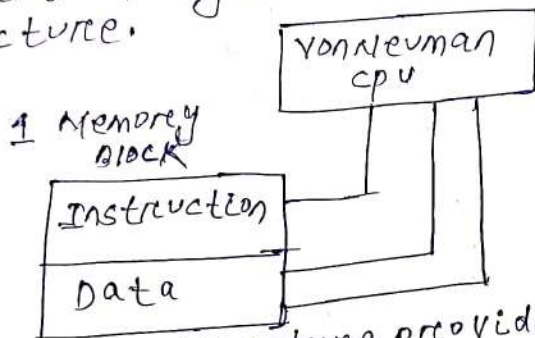 cture.
VonNeuman
CPU
1 Memory
Block
Instruction
Data
provid